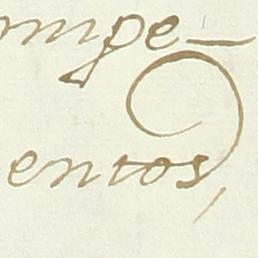 mpe-
entos,